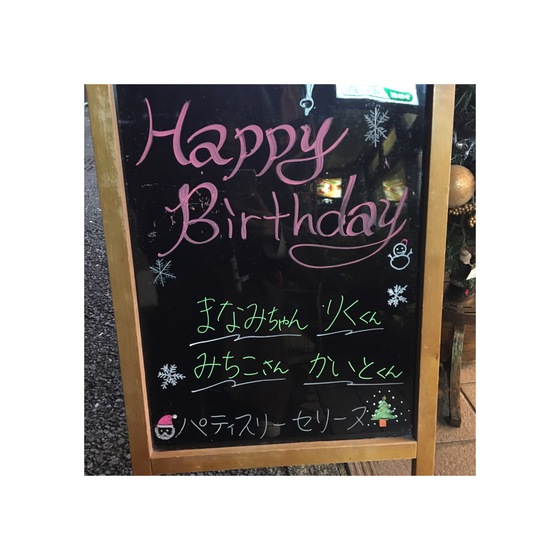 Happy
Birthday
まなみちゃん りくくん
みちこさん かいとくん
パティスリー セリーヌ